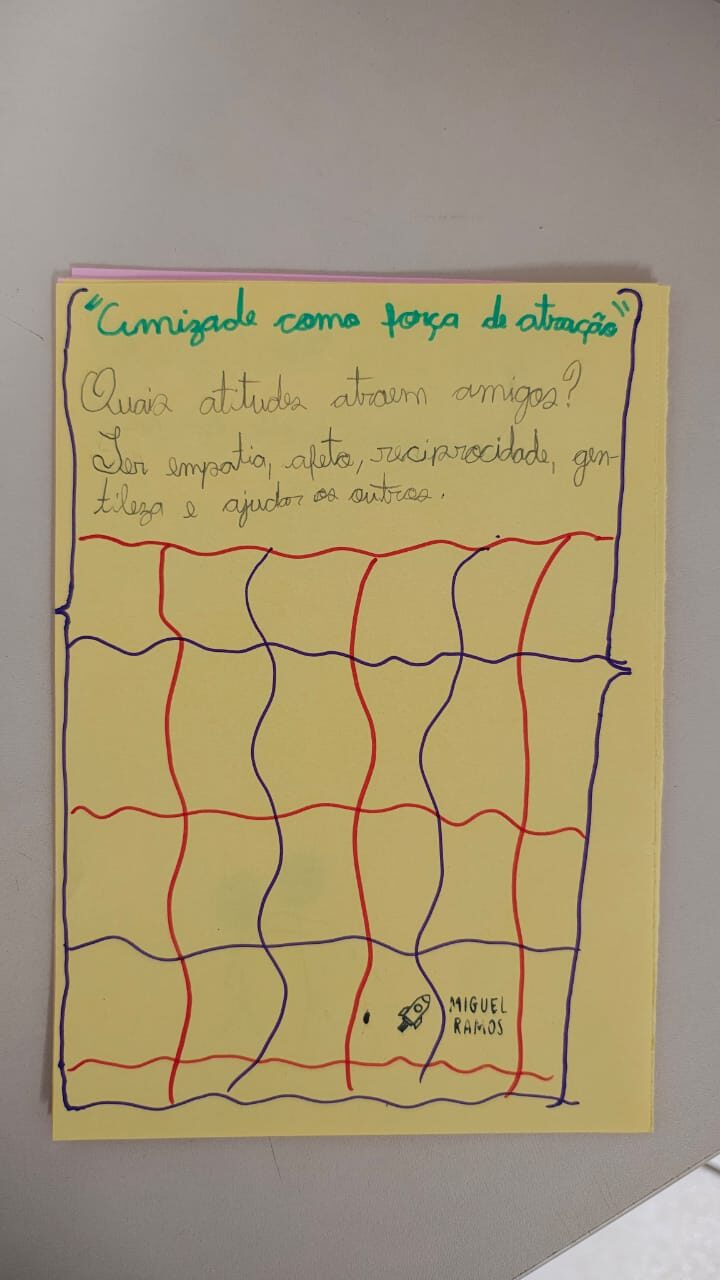 "Amizade como força de atração"
Quais atitudes atraem amigos?
Ter empatia, afeto, reciprocidade, gen-
tileza e ajudar os outros.
MIGUEL
RAMOS